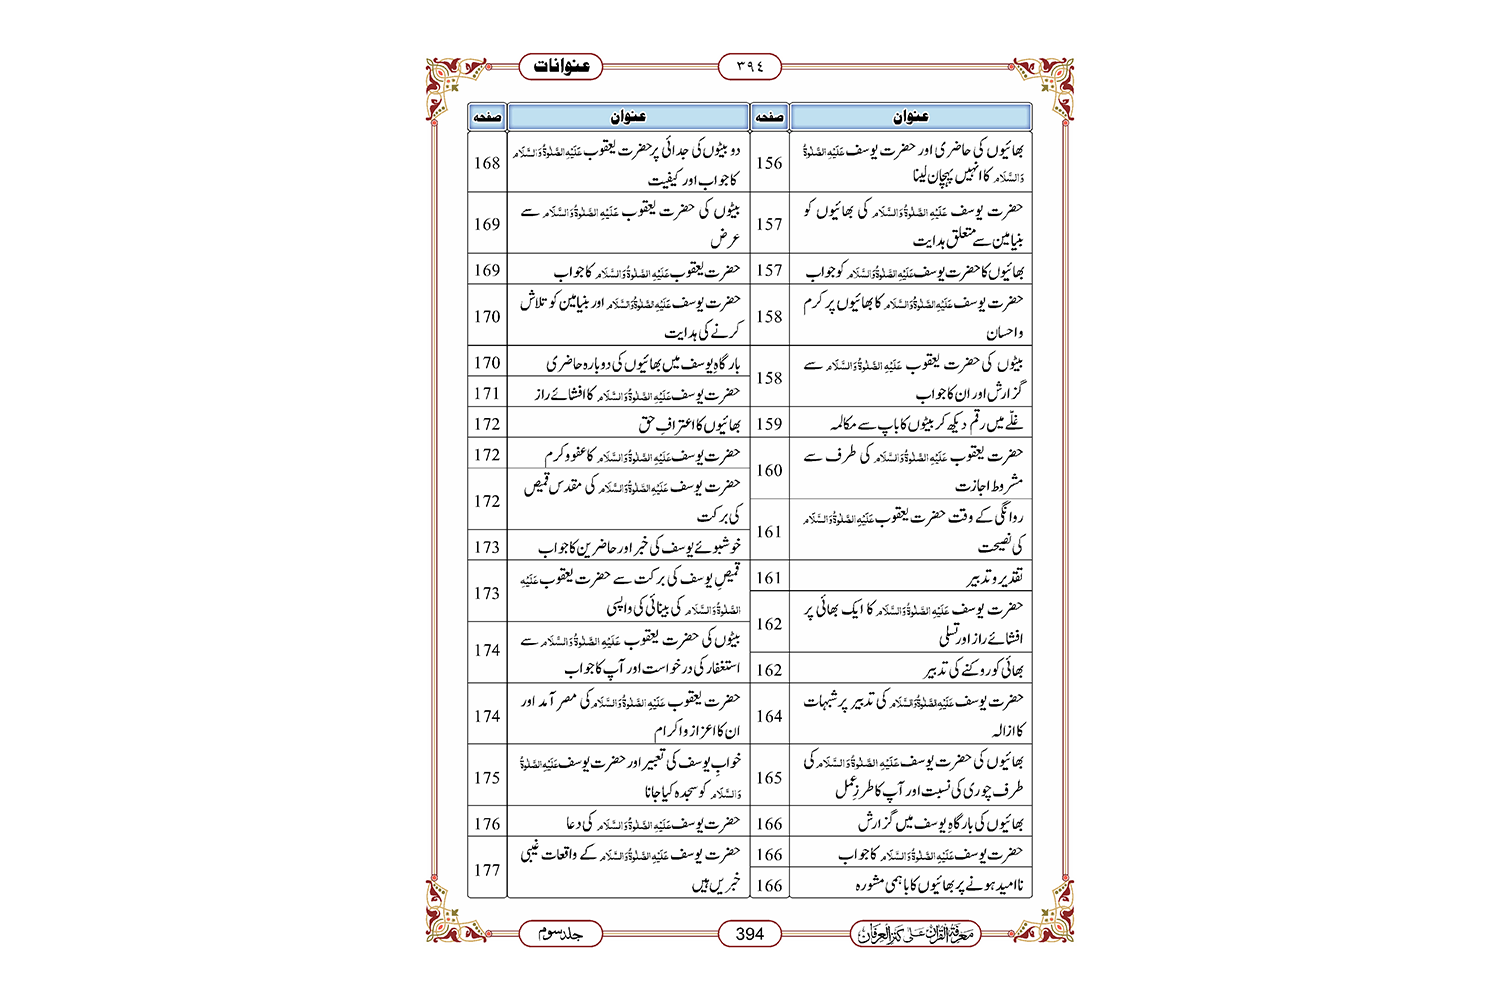 عنوانات
٣٩٤
عنوان صفحہ
بھائیوں کی حاضری اور حضرت یوسف عَلَیْہِ الصَّلٰوۃُ
وَالسَّلَام کا انہیں پہچان لینا 156
حضرت یوسف عَلَیْہِ الصَّلٰوۃُ وَالسَّلَام کی بھائیوں کو
بنیامین سے متعلق ہدایت 157
بھائیوں کا حضرت یوسف عَلَیْہِ الصَّلٰوۃُ وَالسَّلَام کو جواب 157
حضرت یوسف عَلَیْہِ الصَّلٰوۃُ وَالسَّلَام کا بھائیوں پر کرم
و احسان 158
بیٹوں کی حضرت یعقوب عَلَیْہِ الصَّلٰوۃُ وَالسَّلَام سے
گزارش اور ان کا جواب 158
غلّے میں رقم دیکھ کر بیٹوں کا باپ سے مکالمہ 159
حضرت یعقوب عَلَیْہِ الصَّلٰوۃُ وَالسَّلَام کی طرف سے
مشروط اجازت 160
روانگی کے وقت حضرت یعقوب عَلَیْہِ الصَّلٰوۃُ وَالسَّلَام
کی نصیحت 161
تقدیر و تدبیر 161
حضرت یوسف عَلَیْہِ الصَّلٰوۃُ وَالسَّلَام کا ایک بھائی پر
افشائے راز اور تسلی 162
بھائی کو روکنے کی تدبیر 162
حضرت یوسف عَلَیْہِ الصَّلٰوۃُ وَالسَّلَام کی تدبیر پر شبہات
کا ازالہ 164
بھائیوں کی حضرت یوسف عَلَیْہِ الصَّلٰوۃُ وَالسَّلَام کی
طرف چوری کی نسبت اور آپ کا طرزِ عمل 165
بھائیوں کی بارگاہِ یوسف میں گزارش 166
حضرت یوسف عَلَیْہِ الصَّلٰوۃُ وَالسَّلَام کا جواب 166
ناامید ہونے پر بھائیوں کا باہمی مشورہ 166
عنوان صفحہ
دو بیٹوں کی جدائی پر حضرت یعقوب عَلَیْہِ الصَّلٰوۃُ وَالسَّلَام
کا جواب اور کیفیت 168
بیٹوں کی حضرت یعقوب عَلَیْہِ الصَّلٰوۃُ وَالسَّلَام سے
عرض 169
حضرت یعقوب عَلَیْہِ الصَّلٰوۃُ وَالسَّلَام کا جواب 169
حضرت یوسف عَلَیْہِ الصَّلٰوۃُ وَالسَّلَام اور بنیامین کو تلاش
کرنے کی ہدایت 170
بارگاہِ یوسف میں بھائیوں کی دوبارہ حاضری 170
حضرت یوسف عَلَیْہِ الصَّلٰوۃُ وَالسَّلَام کا افشائے راز 171
بھائیوں کا اعترافِ حق 172
حضرت یوسف عَلَیْہِ الصَّلٰوۃُ وَالسَّلَام کا عفو و کرم 172
حضرت یوسف عَلَیْہِ الصَّلٰوۃُ وَالسَّلَام کی مقدس قمیص
کی برکت 172
خوشبوئے یوسف کی خبر اور حاضرین کا جواب 173
قمیصِ یوسف کی برکت سے حضرت یعقوب عَلَیْہِ
الصَّلٰوۃُ وَالسَّلَام کی بینائی کی واپسی 173
بیٹوں کی حضرت یعقوب عَلَیْہِ الصَّلٰوۃُ وَالسَّلَام سے
استغفار کی درخواست اور آپ کا جواب 174
حضرت یعقوب عَلَیْہِ الصَّلٰوۃُ وَالسَّلَام کی مصر آمد اور
ان کا اعزاز و اکرام 174
خوابِ یوسف کی تعبیر اور حضرت یوسف عَلَیْہِ الصَّلٰوۃُ
وَالسَّلَام کو سجدہ کیا جانا 175
حضرت یوسف عَلَیْہِ الصَّلٰوۃُ وَالسَّلَام کی دعا 176
حضرت یوسف عَلَیْہِ الصَّلٰوۃُ وَالسَّلَام کے واقعات غیبی
خبریں ہیں 177
معرفۃ القرآن علی کنز العرفان
394
جلد سوم